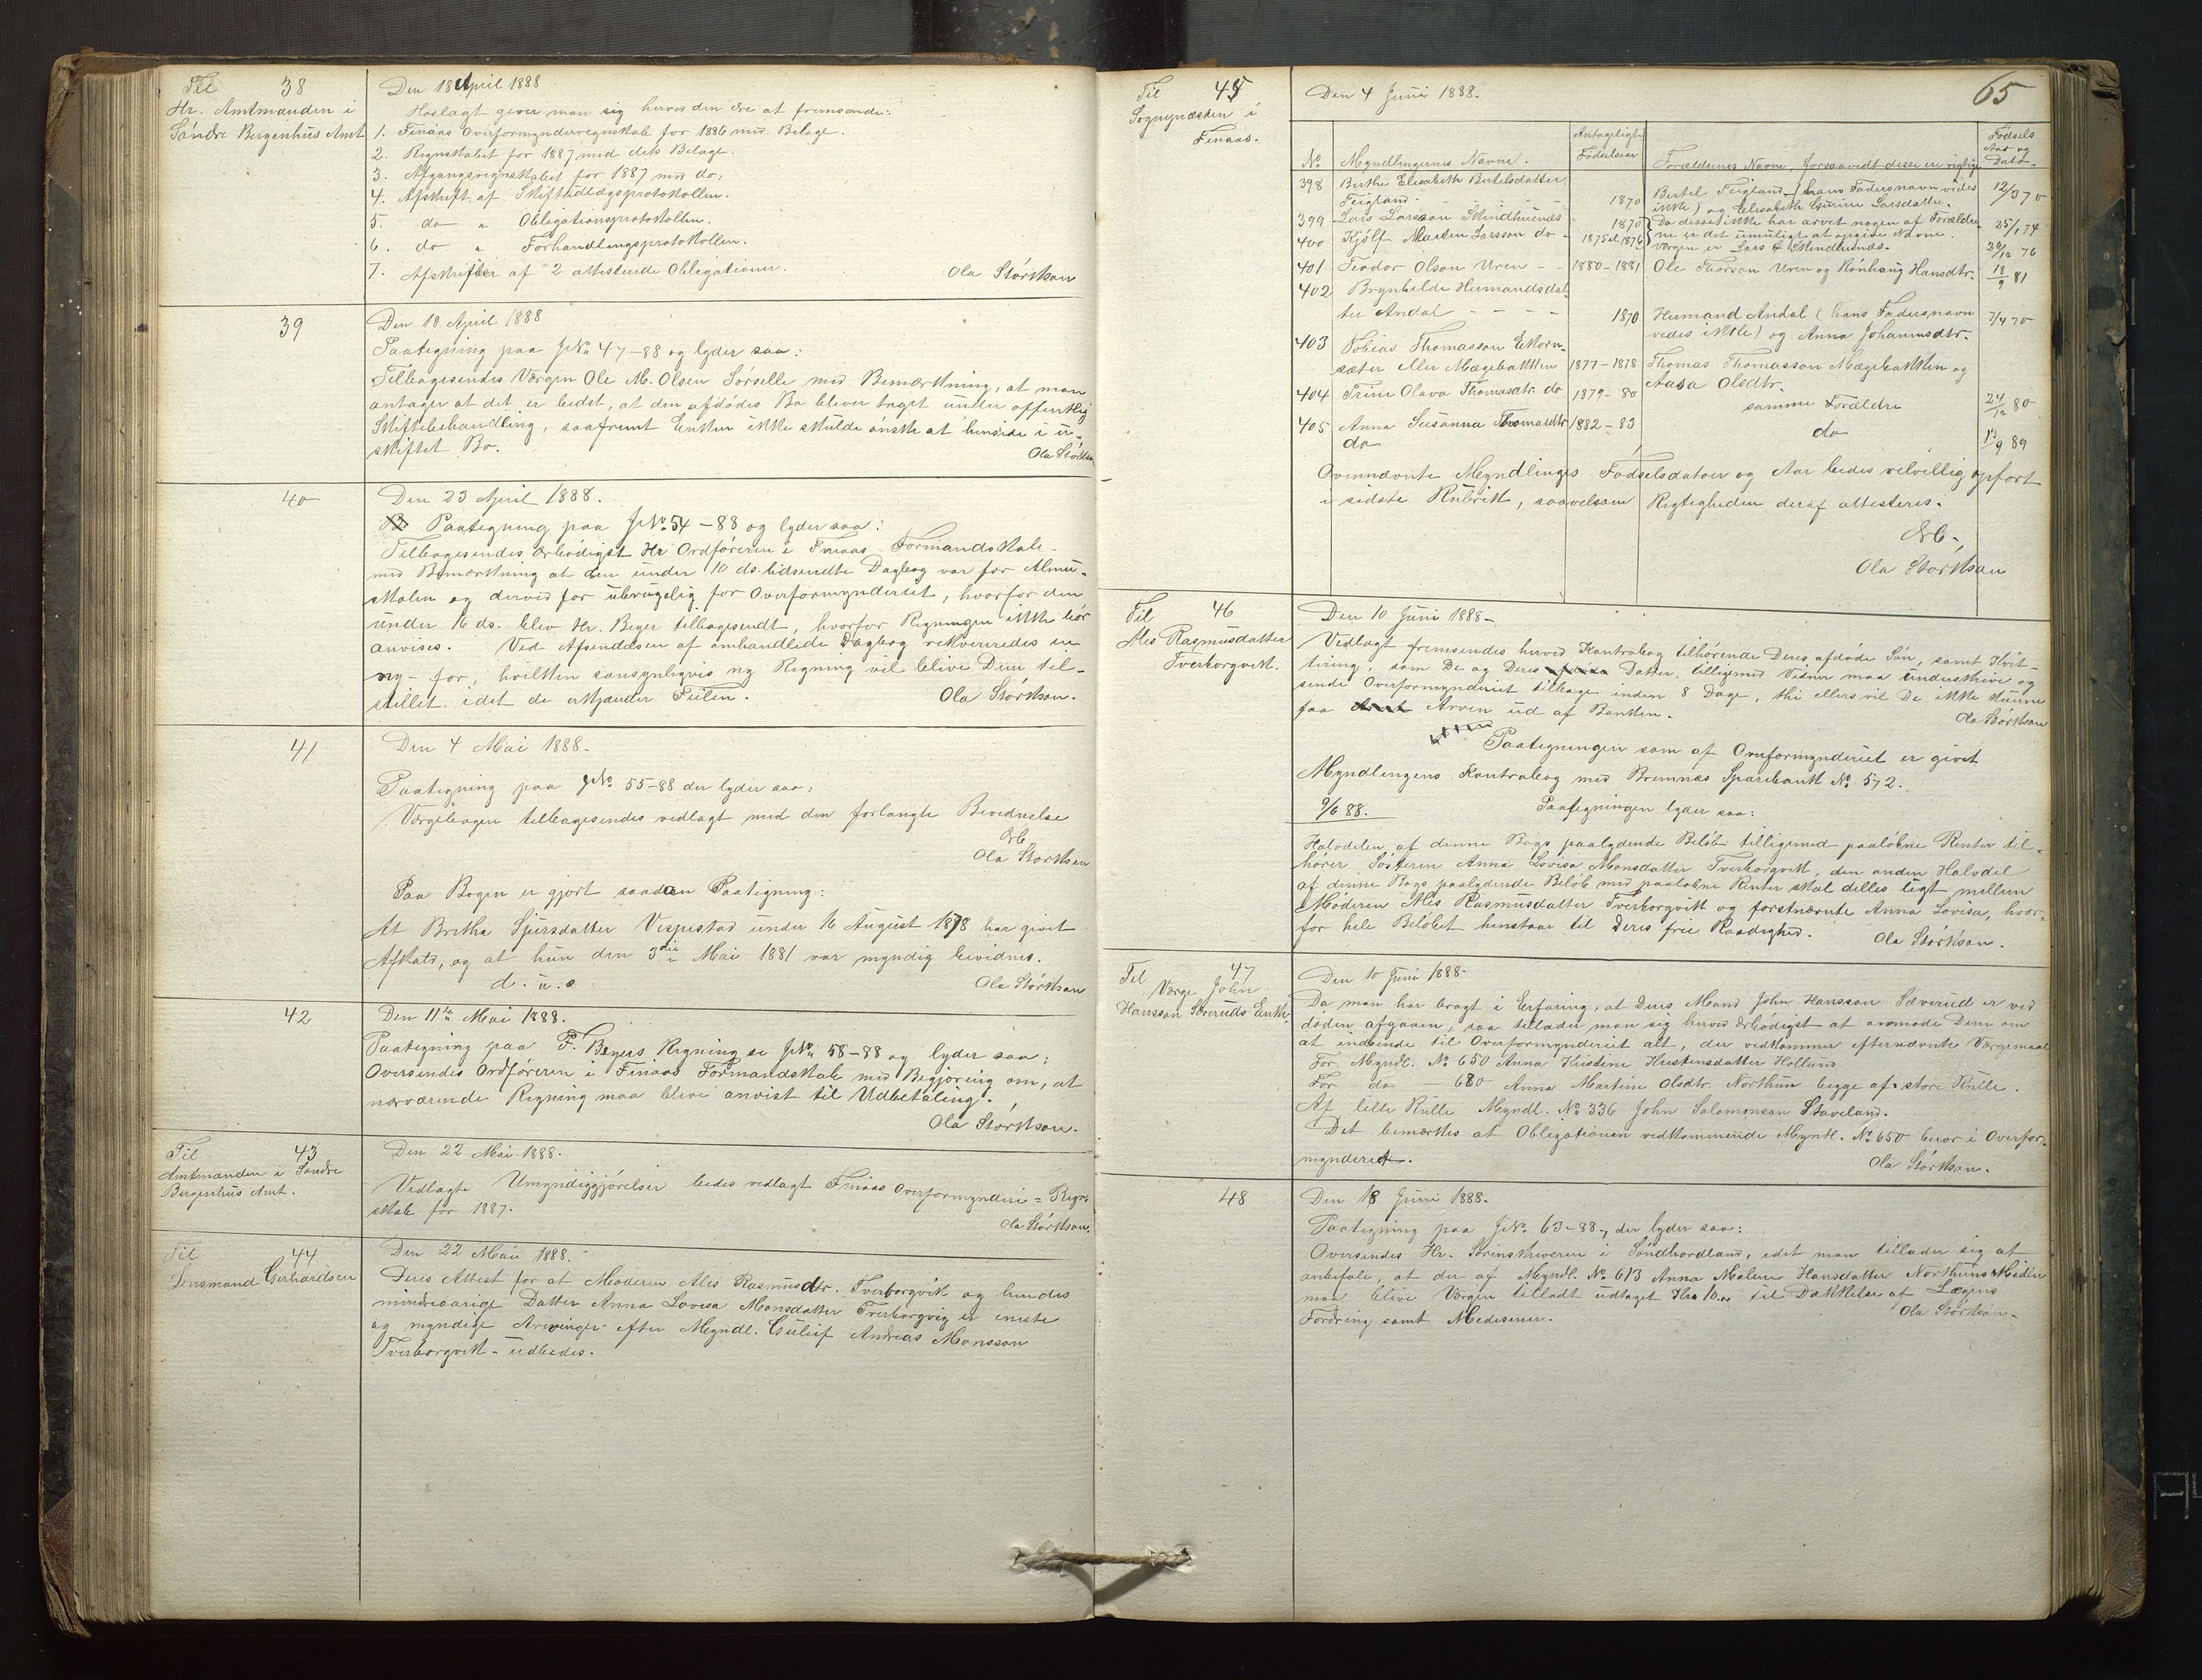 Til 38
Hr. Amtmanden i
Søndre Bergenhus Amt
Den 18 April 1888
Hoslagt giver man sig herved den Ære at fremsende:
1. Finaas Overformynderregnskab for 1886 med Bilage.
2. Regnskabet for 1887 med dets Bilage.
3. Afgangsregnskabet for 1887 med do:
4. Afskrift af Skifteudlægsprotokollen.
5. do " Obligationsprotokollen.
6. do " Forhandlingsprotokollen.
7. Afskrifter af 2 attesterede Obligationer.
Ola Størkson
39
Den 18 April 1888
Paategning paa JNo 47-88 og lyder saa:
Tilbagesendes Værgen Ole M. Olsen Sørselle med Bemærkning, at man
antager at det er bedst, at den afdødes Bo bliver taget under offentlig
Skiftebehandling, saafremt Enken ikke skulde ønske at hensidde i u-
skiftet Bo.
Ola Størkson
40
Den 23 April 1888.
Paategning paa JNo 54-88 og lyder saa:
Tilbagesendes ærbødigst Hr Ordføreren i Finaas Formandskab
med Bemærkning at den under 10 ds. tidsendte Dagbog var for Almu-
skolen og derved for ubrugelig for Overformynderiet, hvorfor den
under 16 ds. blev Hr. Beyer tilbagesendt, hvorfor Regningen ikke bør
anvises. Ved Afsendelsen af omhandlede Dagbog rekvireredes en
ny - for, hvilken sansynligvis ny Regning vil blive Dem til-
stillet idet de erkjænder Feilen.
Ola Størkson.
41
Den 4 Mai 1888.
Paategning paa JNo. 55-88 der lyder saa:
Værgebogen tilbagesendes vedlagt med den forlangte Bevidnelse
Ærb.
Ola Størkson
Paa Bogen er gjort saadan Paategning:
At Bretha Sjursdatter Vespestad under 16 August 1878 har givet
Afkald, og at hun den 3die Mai 1881 var myndig bevidnes.
d. u. s
Ola Størkson
42
Den 11te Mai 1888.
Paategning paa F. Beyers Regning se JNo 58-88 og lyder saa:
Oversendes Ordføreren i Finaas Formandskab med Begjæring om, at
nærværende Regning maa blive anvist til Udbetaling.
Ola Størkson.
Til 43
Amtmanden i Søndre
Bergenhus Amt.
Den 22 Mai 1888.
Vedlagte Umyndiggjørelser bedes vedlagt Finaas Overformynderi-Regn-
skab for 1887.
Ola Størkson.
Til 44
Lensmand Gerhardsen
Den 22 Mai 1888.
Deres Attest for at Moderen Ales Rasmusdtr. Tverborgvik og hendes
mindreaarige Datter Anna Lovisa Monsdatter Tverborgvig er eneste
og myndige Arvinger efter Myndl. Guleif Andreas Monsson
Tverborgvik - udbedes.
65
Til 45
Sognepræsten i
Finaas.
Den 4 Juni 1888.
No Myndlingernes Navne. Antageligt Fødselsaar Forældrenes Navne, forsaavidt disse ere rigtige Fødsels Aar og Dato
398 Birthe Elisabeth Bertelsdatter
Feigland - 1870 Bertel Feigland (hans Fadersnavn vides 12/3 70
ikke) og Elisabeth Gurine Larsdatter.
399 Lars Larsson Skindhuenes 1870 Da disse ikke har arvet nogen af Forældre- 25/1 74
400 Kjølf Martin Larsson do - 1875 el. 1876 ne er det umuligt at opgive Navne. 24/12 76
Værgen er Lars Skindhuenes.
401 Teodor Olson Uren - - 1880-1881 Ole Thorson Uren og Rønhaug Hansdtr. 18/9 81
402 Brynhilde Hermandsdat-
ter Andal - - - - 1870 Hermand Andal (hans Fadersnavn 7/4 70
vedes ikke) og Anna Johannsdtr.
403 Tobias Thomasson Ekorn-
sæter eller Mægebakken 1877-1878 Thomas Thomasson Mægebakken og
Aasa Olsdtr.
404 Trine Olava Thomasdtr. do 1879-80 samme Forældre 24/12 80
405 Anna Susanna Thomasdtr 1882-83
do do 13/9 89
Ovennævnte Myndlinges Fødselsdatoer og Aar bedes velvillig opført
i sidste Rubrik, saavelsom Rigtigheden deraf attesteres.
Ærb.
Ola Størkson
Til 46
Ales Rasmusdatter
Tverborgvik.
Den 10 Juni 1888-
Vedlagt fremsendes herved Kontrabog tilhørende Deres afdøde Søn, samt Kvit-
tering, som De og Deres Datter tilligemed Vidner maa underskrive og
sende Overformynderiet tilbage inden 8 Dage, thi ellers vil De ikke kunne
faa Arven ud af Banken.
Ola Størkson
Paategningen som af Overformynderiet er givet
Myndlingens Kontrabog med Bremnæs Sparebank No 572.
9/6 88. Paategningen lyder saa:
Halvdelen af denne Bogs paalydende Beløb tilligemed paaløbne Renter til-
hører Søsteren Anna Lovisa Monsdatter Tverborgvik, den anden Halvdel
af denne Bogs paalydende Beløb med paaløbne Renter skal delles ligt mellem
Moderen Ales Rasmusdatter Tverborgvik og førstnævnte Anna Lovisa, hvor-
for hele Beløbet henstaar til Deres frie Raadighed.
Ola Størkson.
Til 47
Værge John
Hansson Sæveruds Enke.
Den 10 Juni 1888.
Da man har bragt i Erfaring, at Deres Mand John Hansson Sæverud er ved
døden afgaaen, saa tillader man sig herved ærbødigst at anmode Dem om
at indsende til Overformynderiet alt, der vedkommer efternævnte Værgemaal
For Myndl. No 650 Anna Kristine Kristensdatter Hollund
For do - 680 Anna Martine Olsdtr. Northun begge af store Rulle.
Af lille Rulle Myndl. No 336 John Salomonsen Staveland.
Det bemærkes at Obligationen vedkommende Myndl. No 650 beror i Overfor-
mynderiet.
Ola Størkson.
48
Den 18 Juni 1888.
Paategning paa JNo 63-88, der lyder saa:
Oversendes Hr. Sorinskriveren i Søndhordland, idet man tillader sig at
anbefale, at der af Myndl. No 613 Anna Malene Hansdatter Northuns Midler
maa blive Værgen tilladt udtaget Kr. 10.00 til Dækkelse af Lægens
Fordring samt Medesiner.
Ola Størkson.